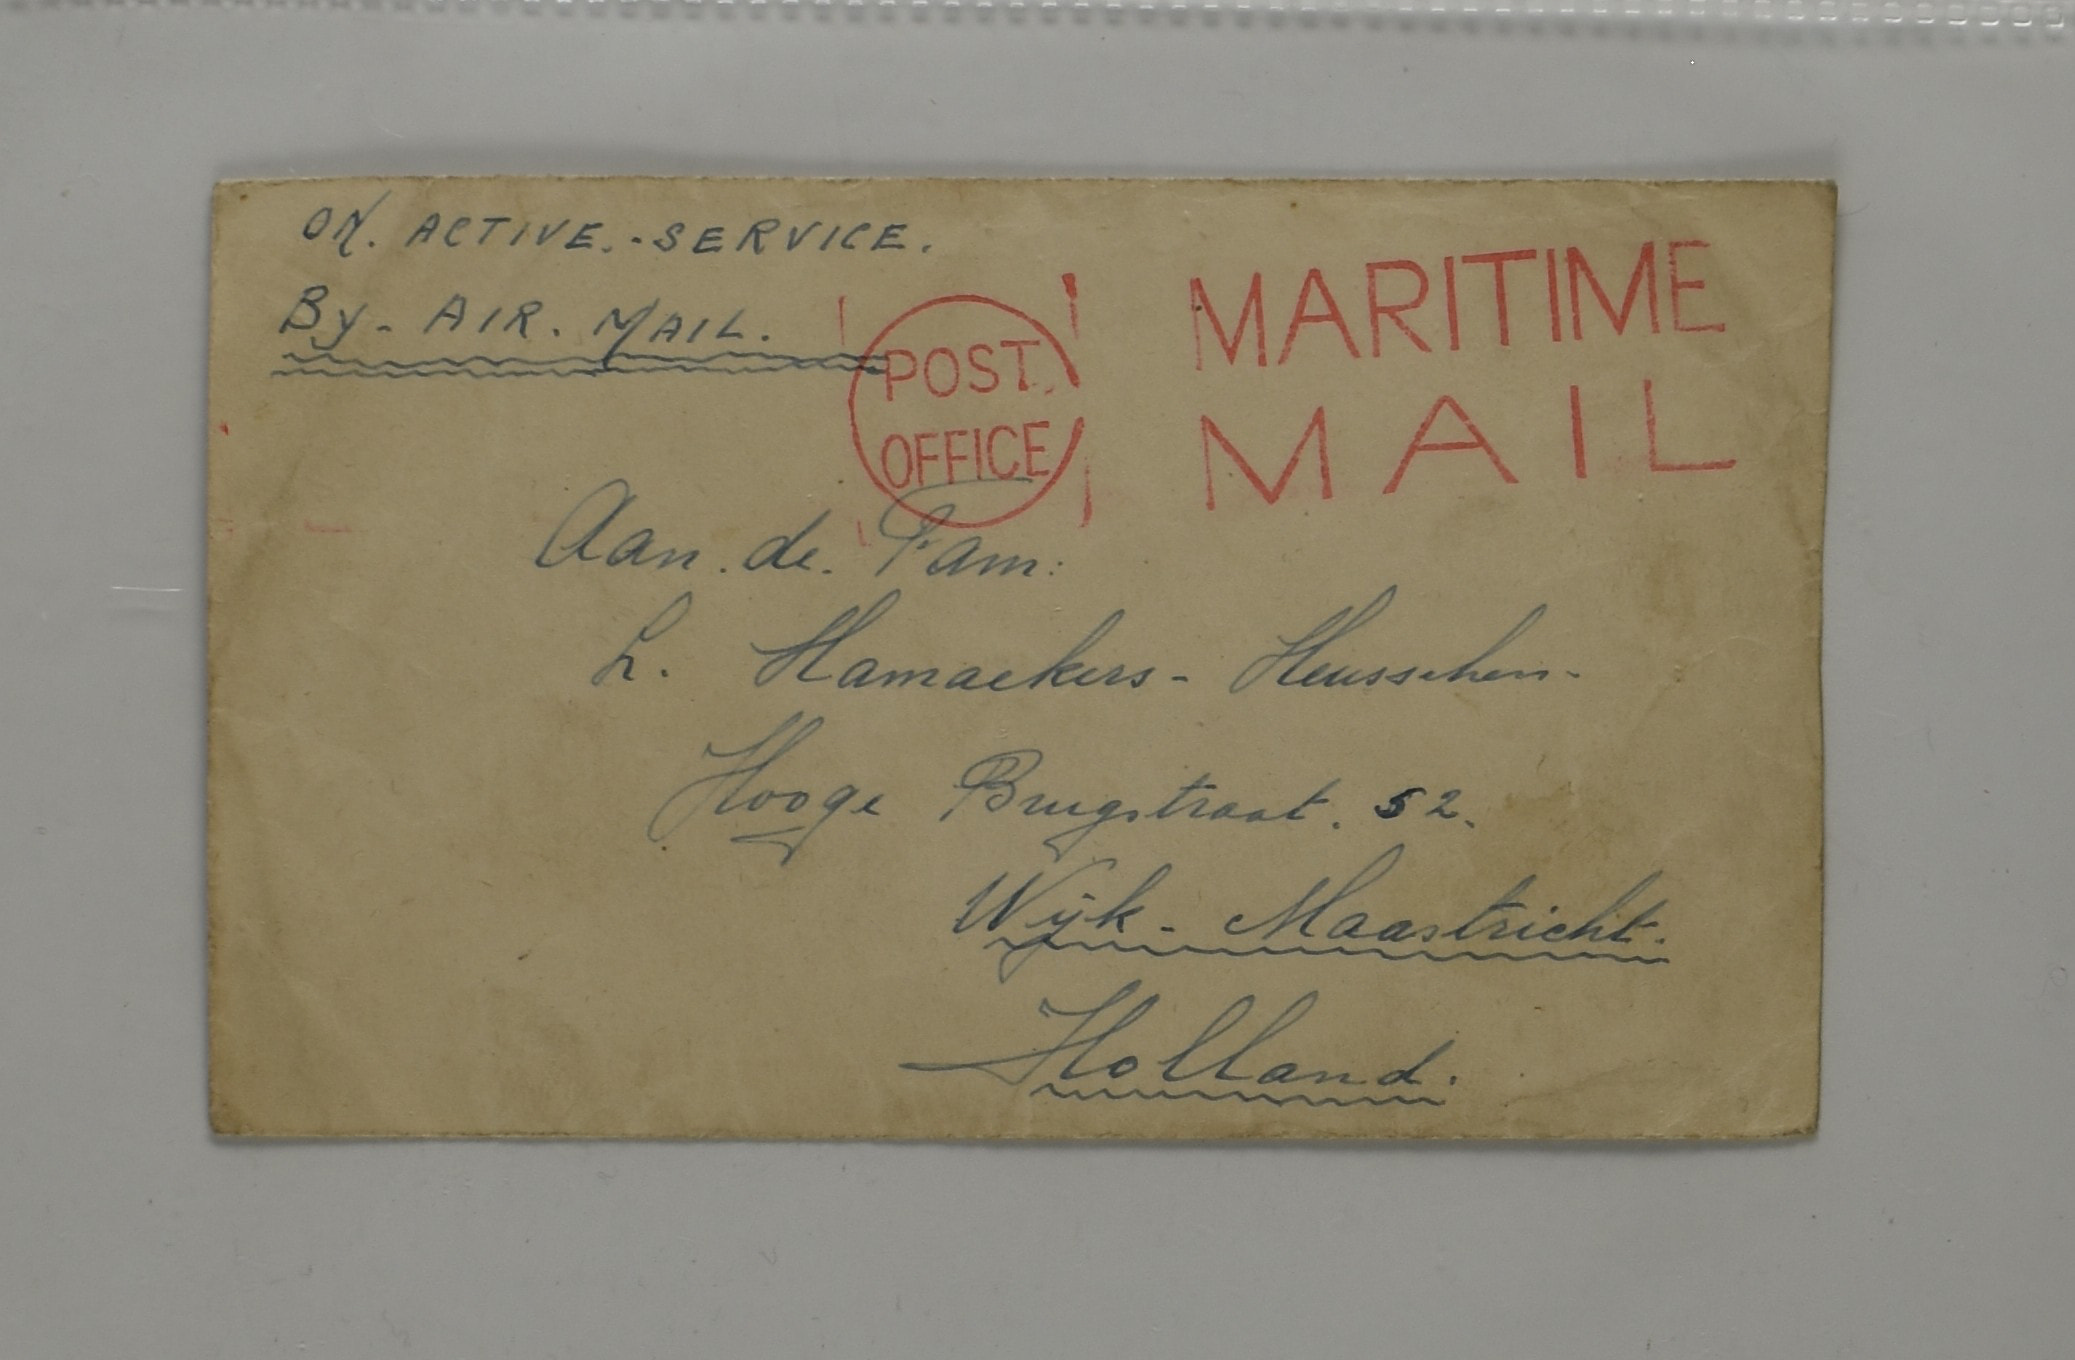 ON. ACTIVE.-SERVICE.
By- AIR. MAIL.
POST
OFFICE
MARITIME
MAIL
Aan. de. Fam:
L. Hamaekers- Heusschen-
Hooge Brugstraat. 52.
Wijk- Maastricht.
Holland.